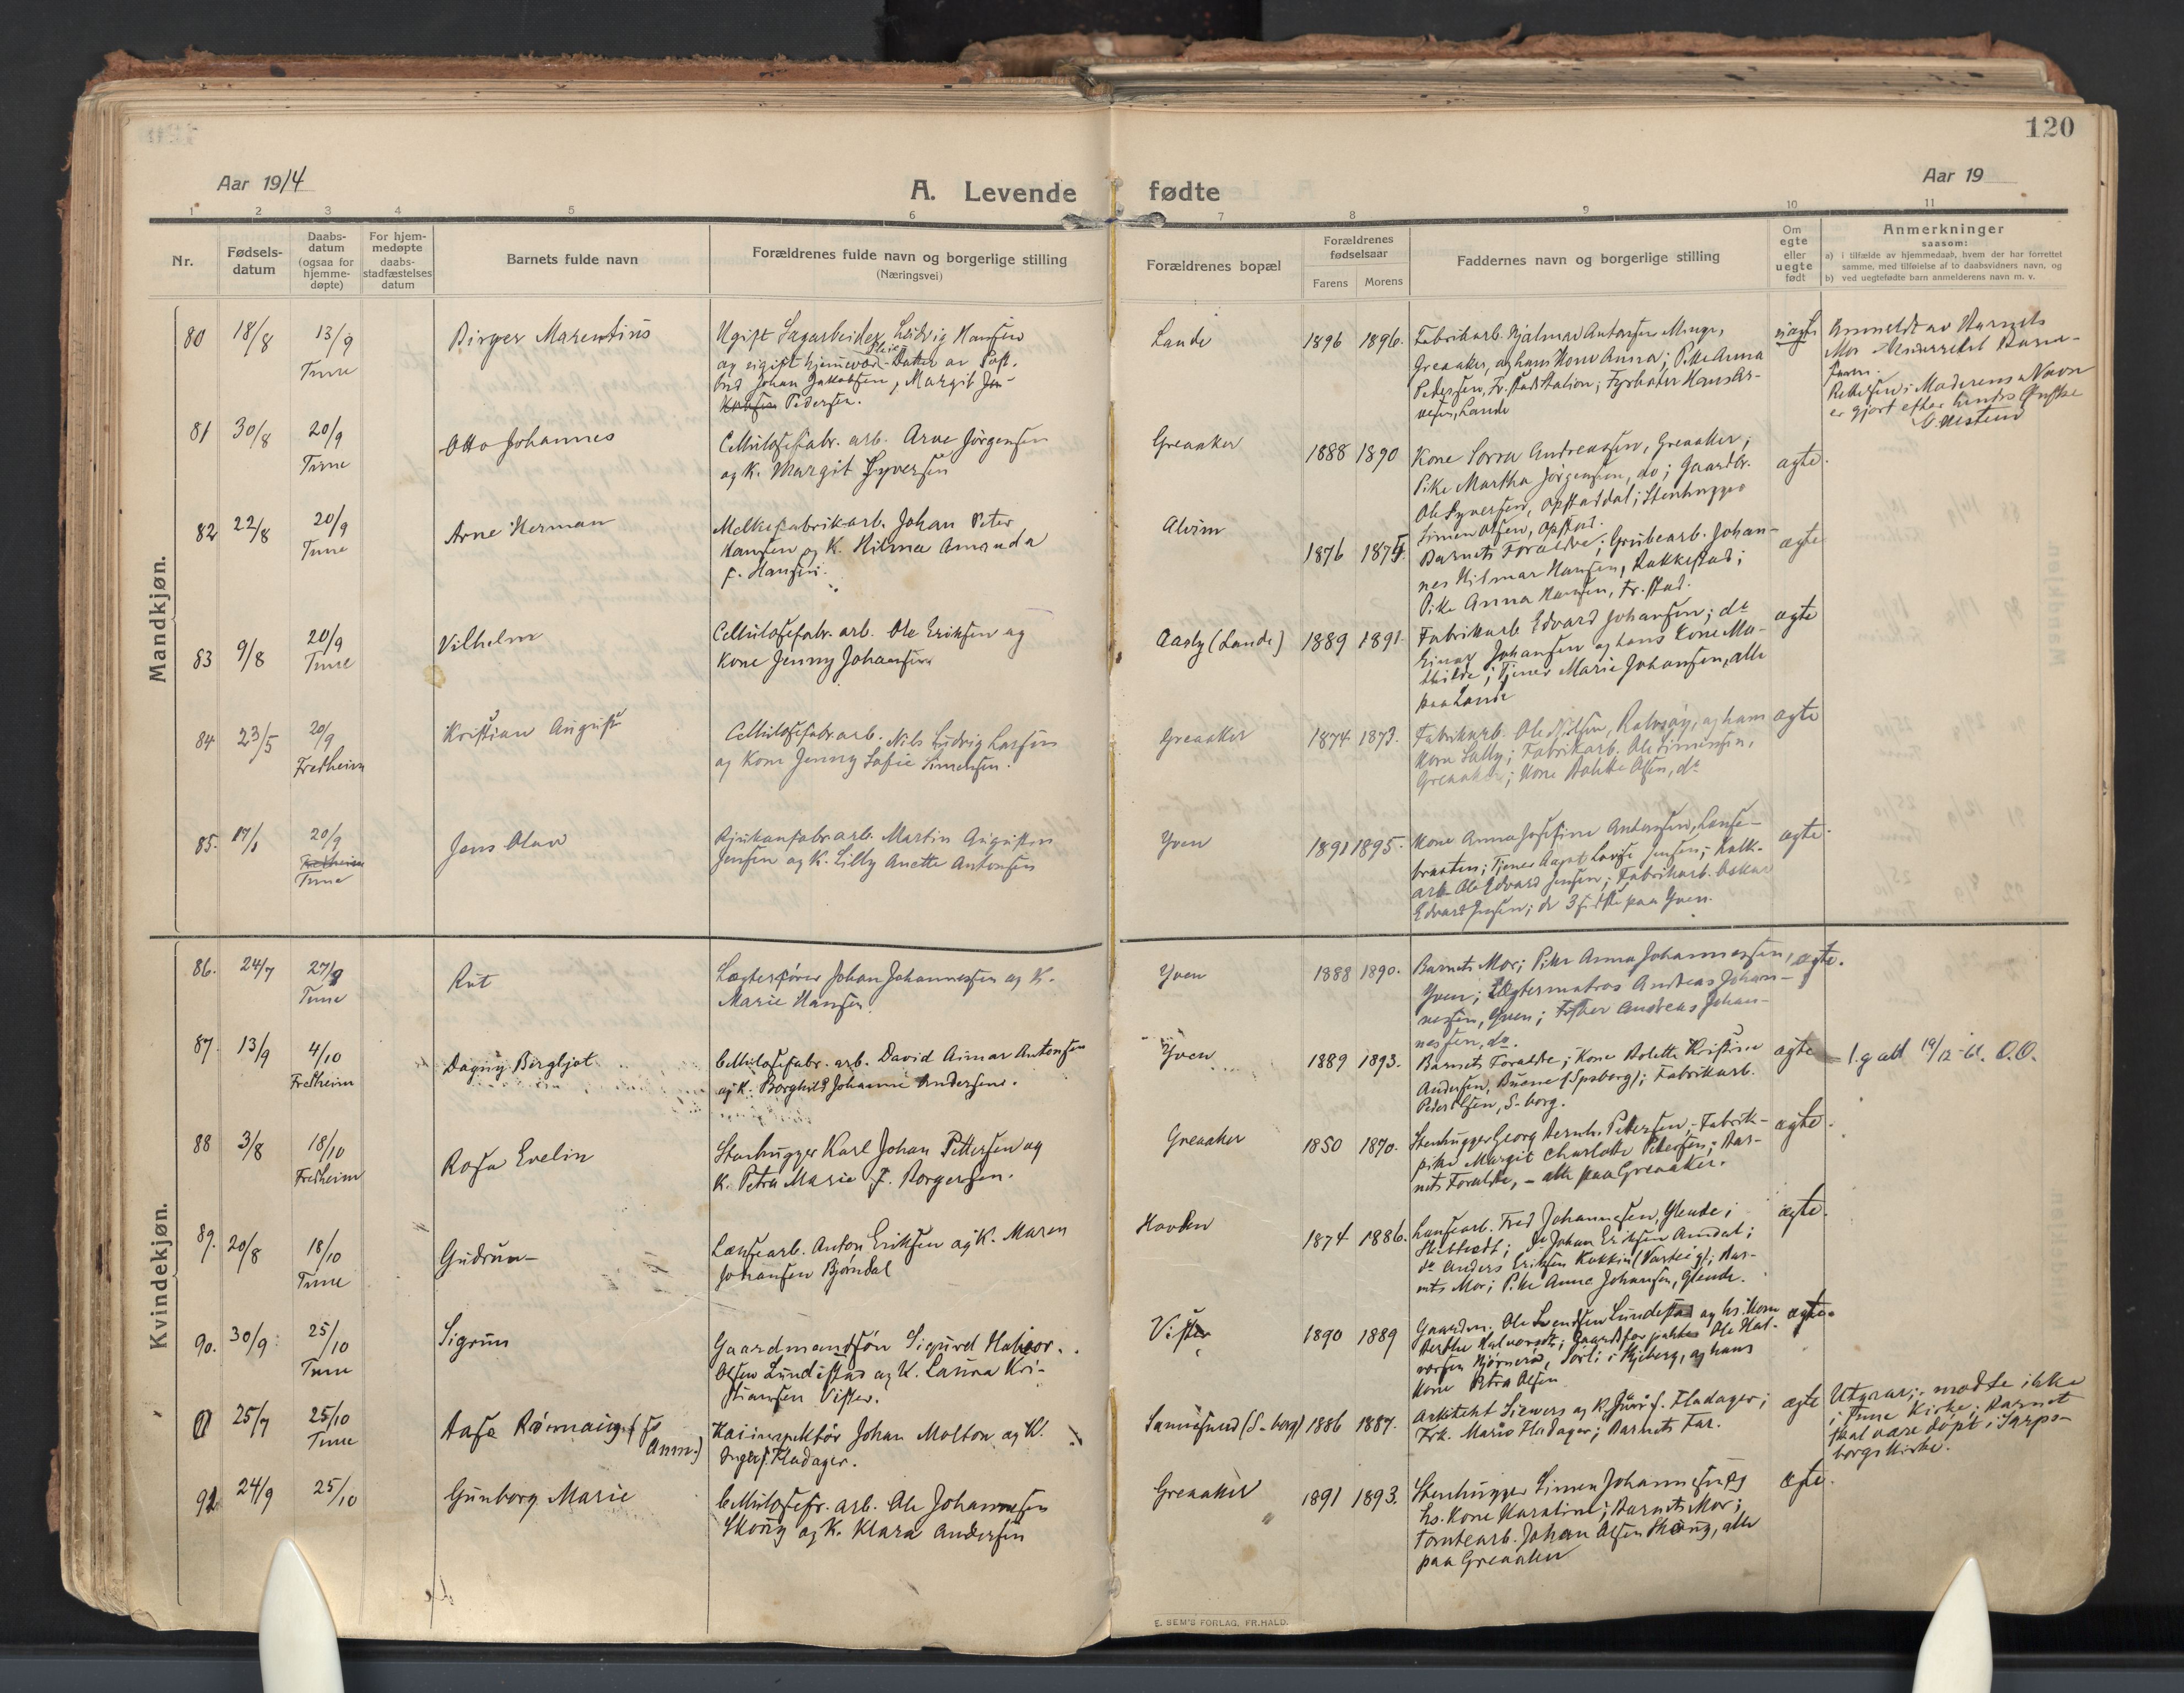 120
Aar 1914
A. Levende fødte
Aar 19
1 2 3 4 5 6 7 8 9 10 11
Nr.
Fødsels-
datum
Daabs-
datum
(ogsaa for
hjemme-
døpte)
For hjem-
medøpte
daabs-
stadfæstelses
datum
Barnets fulde navn
Forældrenes fulde navn og borgerlige stilling
(Næringsvei)
Forældrenes bopæl
Forældrenes
fødselsaar
Farens Morens
Faddernes navn og borgerlige stilling
Om
egte
eller
uegte
født
Anmerkninger
saasom:
a) i tilfælde av hjemmedaab, hvem der har forrettet
samme, med tilføielse af to daabsvidners navn, og
b) ved uegtefødte barn anmelderens navn m. v.
Mandkjøn.
80 18/8 13/9
Tune
Birger Marentius
Ugift Sagarbeider Ludvig Hansen
og ugift hjemmev. Datter av
Johan Jakobsen, Margit
Pedersen.
Lande
1896 1896.
Fabrikarb. Hjalmar Antonsen Minge,
Greaaker, og hans Kone Anna; Pike Anna
Pedersen, Fr.stad Station; Fyrbøter Hans
Lande
uægte
Anmeldt av Barnets
Mor
Rettelsen i Moderens Navn
er gjort efter hendes Ønske
81 30/8 20/9
Tune
Otto Johannes
Cellulosefabr. arb. Arve Jørgensen
og K. Margit Syversen
Greaaker
1888 1890
Kone Andreassen, Greaaker;
Pike Martha Jørgensen, do; Gaardbr.
Ole Syversen, Opstaddal; Stenhugger
Simen Olsen, Opstad.
ægte.
82 22/8 20/9
Tune
Arne Herman
Melkefabrikarb. Johan Peter
Hansen og K. Hilma Amanda
f. Hansen.
Alvim
1876 1875.
Barnets Forældre; Grubearb. Johan-
nes Hilmar Hansen, Rakkestad;
Pike Anna Hansen, Fr.stad.
ægte
83 9/8 20/9
Tune
Vilhelm
Cellulosefabr. arb. Ole Eriksen og
Kone Jenny Johansen
Aasly (Lande)
1889 1891.
Fabrikarb Edvard Johansen; do
Einar Johansen og hans Kone Ma-
thilde; Tjener Marie Johansen, alle
paa Lande
ægte
84 23/5 20/9
Fredheim
Kristian August
Cellulosefabr. arb. Nils Ludvig Larsen
og Kone Jenny Sofie Simensen.
Greaaker
1874 1873.
Fabrikarb. Ole Nilsen, Rolvsøy, og hans
Kone Sally; Fabrikarb. Ole Simensen,
Greaaker; Kone Olsen, do
ægte
85. 17/1 20/9
Fredheim
Tune
Jens Olav
Rjukanfabr. arb. Martin Augustin
Jensen og K. Lilly Anette Antonsen
Yven
1891 1895.
Kone Anna Josefine Antonsen, Lanse-
braaten; Tjener Aagot Lovise Jensen; Kalk-
arb Ole Edvard Jensen; Fabrikarb. Oskar
Edvard Jensen; de 3 sidste paa Yven.
ægte.
Kvindekjøn.
86. 24/7 27/9
Tune
Rut
Lægterfører Johan Johannessen og K.
Marie Hansen.
Yven
1888 1890.
Barnets Mor; Pike Anna Johannessen,
Yven; Lægtermatros Andreas Johan-
nessen, Yven; Fisker Andreas Johan-
nessen, do.
ægte.
87. 13/9 4/10
Fredheim
Dagny Bergljot
Cellulosefabr. arb. David Aimar Antonsen
og K. Borghild Johanne Andersen.
Yven
1889 1893.
Barnets Forældre; Kone Bolette Kristine
Andersen, Buene (Spsborg); Fabrikarb.
Peder Olsen, S-borg.
ægte
l. g att 19/12-61. O.O.
88 3/8 18/10
Fredheim
Rosa Evelin
Stenhugger Karl Johan Pettersen og
K. Petra Marie f. Borgersen.
Greaaker
1850 1870.
Stenhugger Georg Bernh. Pettersen, Fabrik-
pike Margit Charlotte Pettersen; Bar-
nets Forældre, - alle paa Greaaker.
ægte.
89. 20/8 18/10
Tune
Gudrun
Lænsearb. Anton Eriksen og K. Maren
Johansen Bjørndal
Hovden
1874 1886.
Lænsearb. Fred Johannesen, Glende;
do Johan Eriksen Amdal;
do Anders Eriksen (Varteig); Bar-
nets Mor; Pike Anna Johansen, Glende.
ægte.
90. 30/9 25/10
Tune
Sigrun
Gaardmandsøn Sigurd Halvor
Olsen Lundestad og K. Laura Kri-
stiansen Vister.
Vister
1890 1889
Gaardm. Ole Svendsen Lundestad og hs. Kone
Berthe Halvorsdt; Gaardsforpakter Ole Hal-
vorsen Bjørnerød, i Skjeberg, og hans
Kone Petra Olsen
ægte.
91 25/7 25/10
Tune
Aase Rømaing (se
Anm.)
Kaiinspektør Johan Molton og K.
Inger f. Fladager.
Sannesund (S-borg)
1886 1887.
Arkitekt Siewers og K. f. Fladager;
Frk. Marie Fladager; Barnets Far.
ægte
Utgaar; mødte ikke
i Tune Kirke; Barnet
skal være døpt i Sarps-
borgs Kirke.
92 24/9 25/10
Gunborg Marie
Cellulosefr. arb. Ole Johannesen
Skaug og K. Klara Andersen
Greaaker
1891 1893.
Stenhugger Simen Johannesen og
hs. Kone Karoline; Barnets Mor;
Tomtearb. Johan Olsen Skaug, alle
paa Greaaker
ægte.
E. SEM'S FORLAG, FR.HALD.